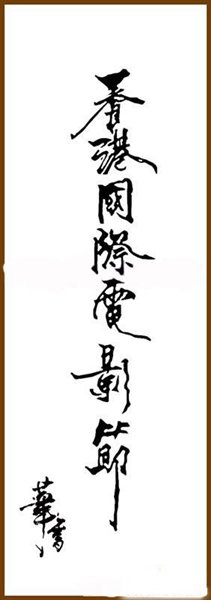 香港國際電影節
華書